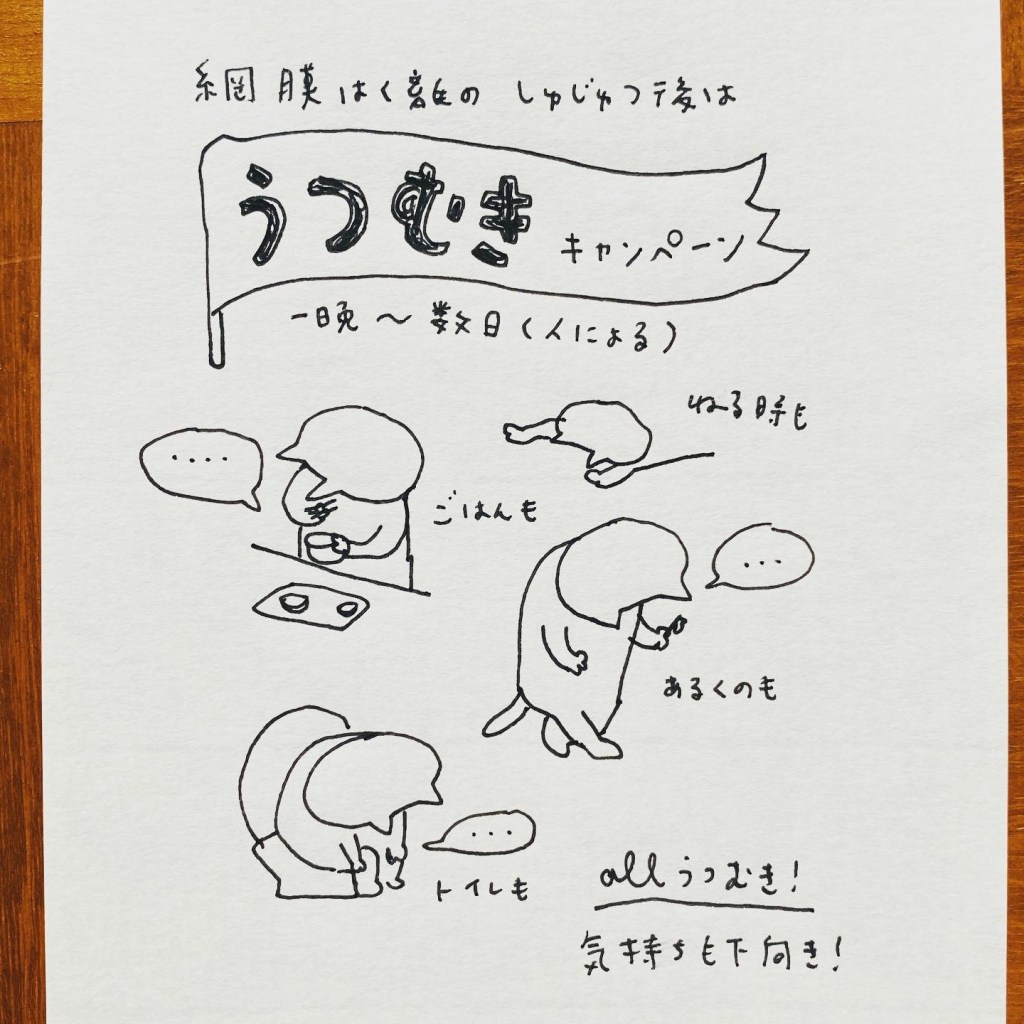 網膜はく離の しゅじゅつ後は
うつむき キャンペーン
一晩～数日(人による)
ねる時も
‥‥
ごはんも
…
あるくのも
…
トイレも
allうつむき!
気持ちも下向き!